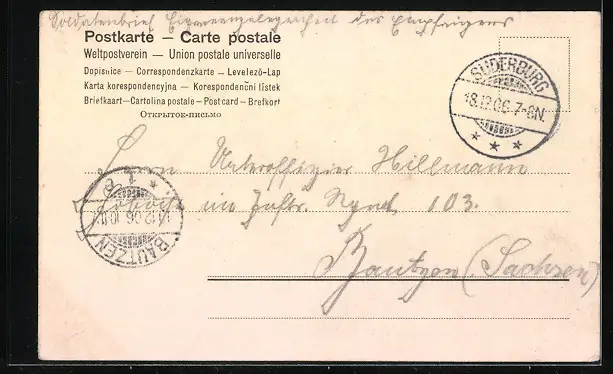 Soldatenbrief Eigene Angelegenheit des Empfängers
Postkarte — Carte postale
Weltpostverein — Union postale universelle
Dopisnice — Correspondenzkarte — Levelező-Lap
Karta korespondencyjna — Korespondenční lístek
Briefkaart — Cartolina postale — Postcard — Brefkort
Открытое-письмо
SUDERBURG
18.12.06.7-8N.
Herrn Unteroffizier Hillmann
im Inftr. Regmt. 103.
Bautzen (Sachsen)
BAUTZEN